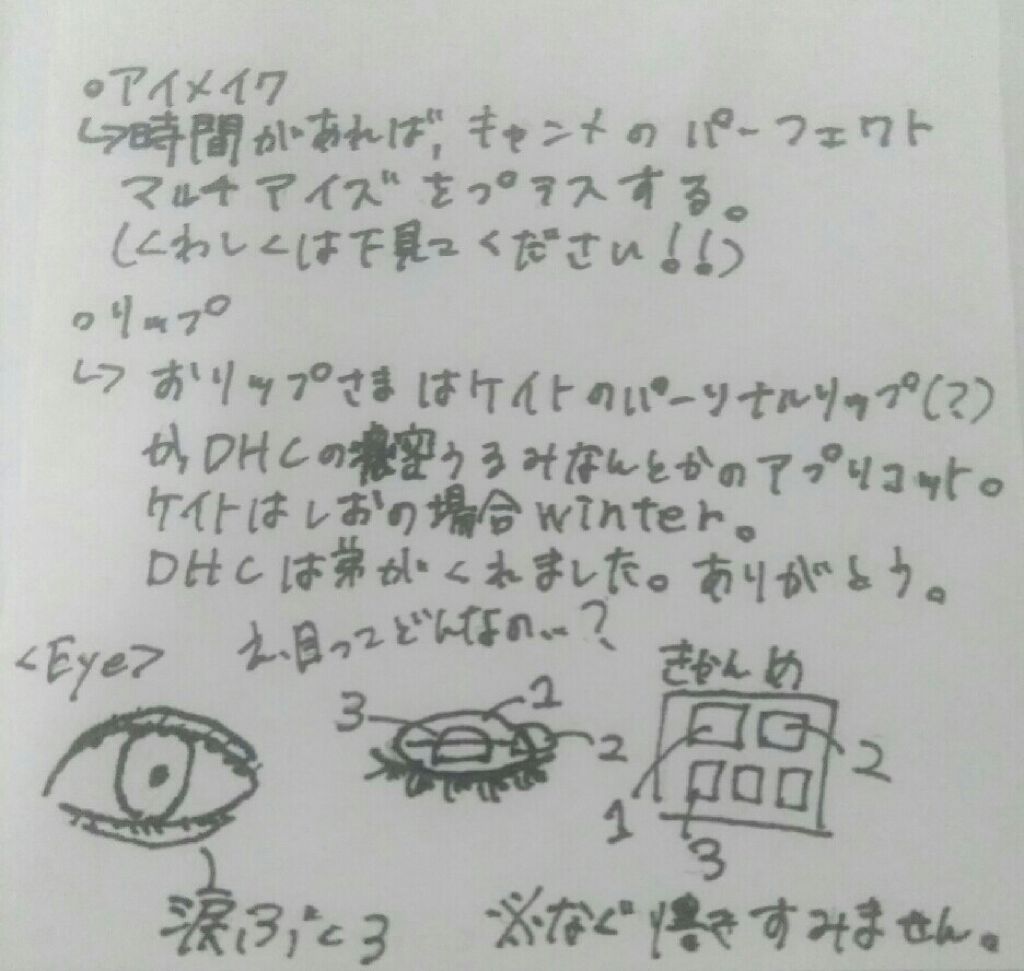 ○アイメイク
↳時間があれば、キャンメのパーフェクト
マルチアイズをプラスする。
(くわしくは下見てください!!)
○リップ
↳おリップさまはケイトのパーソナルリップ(?)
か、DHCの濃密うるみなんとかのアプリコット。
ケイトはしおの場合winter。
DHCは弟がくれました。ありがとう。
<Eye> え、目ってどんなの…?
きかんめ
3 1 2
1 2 3
涙ぶくろ
※なぐり書きすみません。